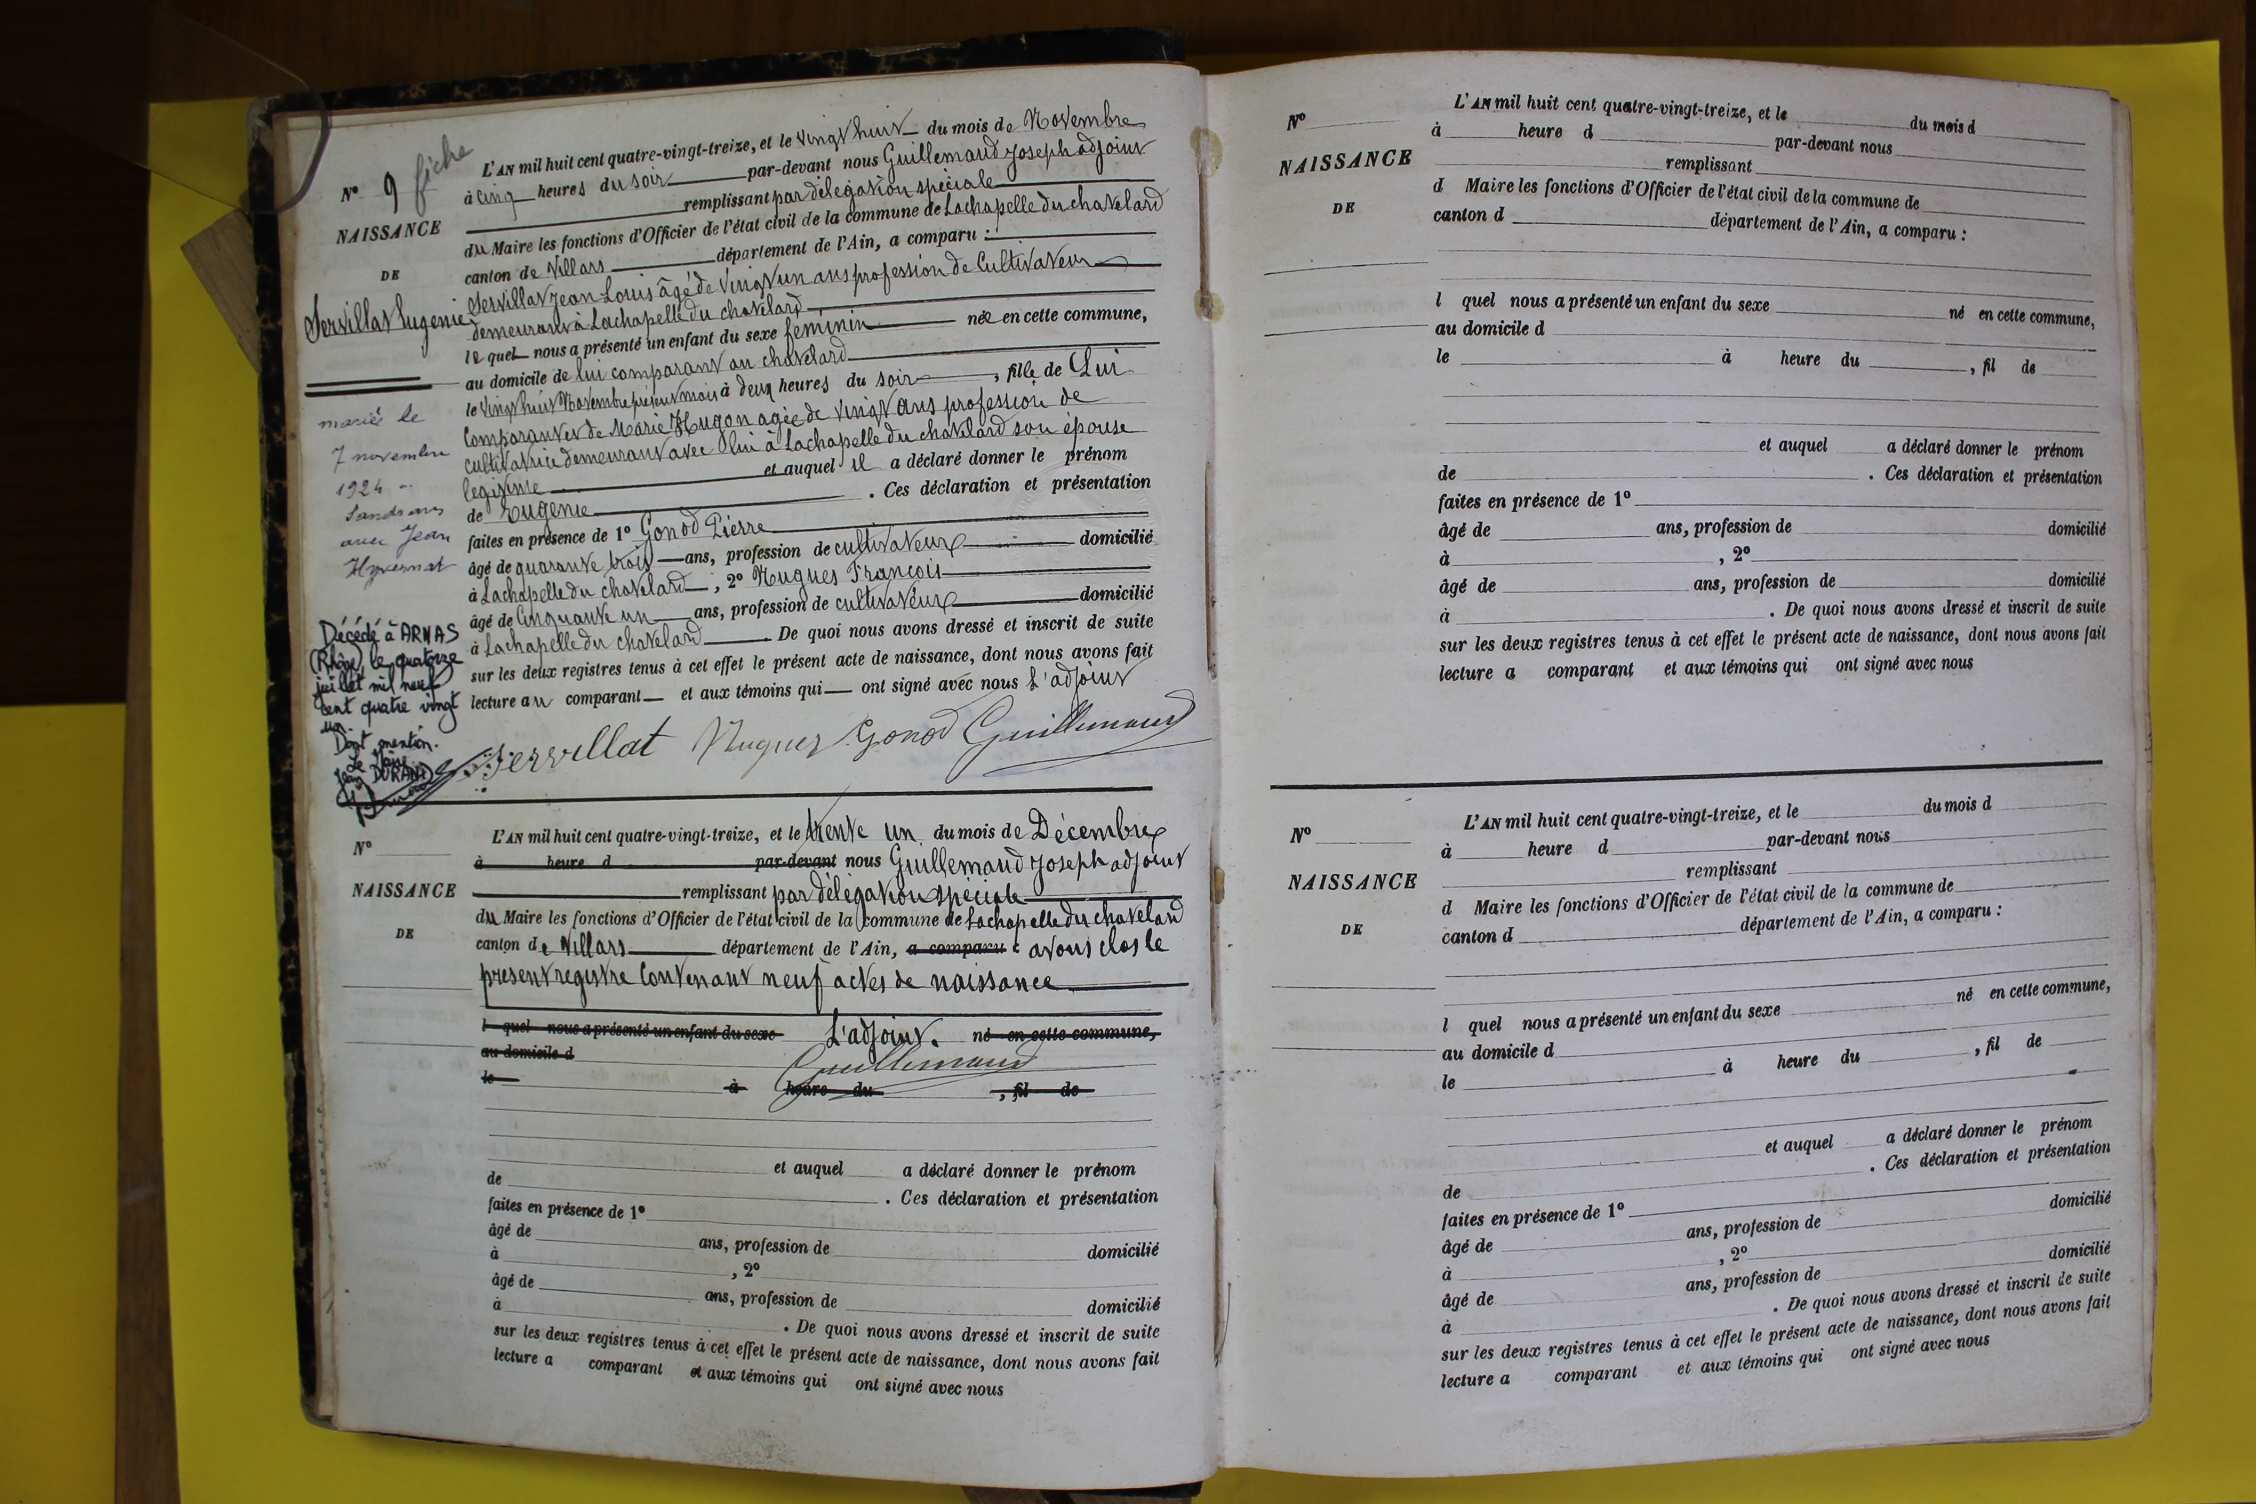 fiche
N° 9
NAISSANCE
DE
Servillat Eugenie
L'AN mil huit cent quatre-vingt-treize, et le vingt huit du mois de Novembre
à cinq heures du soir par-devant nous Guillemaud Joseph adjoint
remplissant par délégation spéciale
du Maire les fonctions d'Officier de l'état civil de la commune de Lachapelle du chatelard
canton de Villars département de l'Ain, a comparu :
Servillat Jean Louis âgé de vingt un ans profession de Cultivateur
demeurant à Lachapelle du chatelard
le quel nous a présenté un enfant du sexe féminin née en cette commune,
au domicile de lui comparant au chatelard
le vingt huit Novembre présent mois à deux heures du soir , fille de Lui
Comparant et de Marie Hugon agée de vingt ans profession de
cultivatrice demeurant avec lui à Lachapelle du chatelard son épouse
legitime et auquel il a déclaré donner le prénom
de Eugenie . Ces déclaration et présentation
faites en présence de 1° Gonod Pierre
âgé de quarante trois ans, profession de cultivateur domicilié
à Lachapelle du chatelard , 2° Nugues François
âgé de Cinquante un ans, profession de cultivateur domicilié
à Lachapelle du chatelard . De quoi nous avons dressé et inscrit de suite
sur les deux registres tenus à cet effet le présent acte de naissance, dont nous avons fait
lecture au comparant et aux témoins qui ont signé avec nous L'adjoint
Servillat Nugues Gonod Guillemaud
mariée le
7 novembre
1924
Sandrans
avec Jean
Hyvernat
Décédé à ARNAS
(Rhône) le quatorze
juillet mil neuf
cent quatre vingt
un.
Dont mention.
Le Maire
Jean DURAND
N°
NAISSANCE
DE
L'AN mil huit cent quatre-vingt-treize, et le trente un du mois de Décembre
à heure d par-devant nous Guillemaud Joseph adjoint
remplissant par délégation spéciale
du Maire les fonctions d'Officier de l'état civil de la commune de Lachapelle du chatelard
canton de Villars département de l'Ain, a comparu : avons clos le
présent registre contenant neuf actes de naissance
l quel nous a présenté un enfant du sexe L'adjoint. né en cette commune,
au domicile d Guillemaud
le à heure du , fil de
et auquel a déclaré donner le prénom
de . Ces déclaration et présentation
faites en présence de 1°
âgé de ans, profession de domicilié
à , 2°
âgé de ans, profession de domicilié
à . De quoi nous avons dressé et inscrit de suite
sur les deux registres tenus à cet effet le présent acte de naissance, dont nous avons fait
lecture a comparant et aux témoins qui ont signé avec nous
N°
NAISSANCE
DE
L'AN mil huit cent quatre-vingt-treize, et le du mois d
à heure d par-devant nous
remplissant
d Maire les fonctions d'Officier de l'état civil de la commune de
canton d département de l'Ain, a comparu :
l quel nous a présenté un enfant du sexe né en cette commune,
au domicile d
le à heure du , fil de
et auquel a déclaré donner le prénom
de . Ces déclaration et présentation
faites en présence de 1°
âgé de ans, profession de domicilié
à , 2°
âgé de ans, profession de domicilié
à . De quoi nous avons dressé et inscrit de suite
sur les deux registres tenus à cet effet le présent acte de naissance, dont nous avons fait
lecture a comparant et aux témoins qui ont signé avec nous
N°
NAISSANCE
DE
L'AN mil huit cent quatre-vingt-treize, et le du mois d
à heure d par-devant nous
remplissant
d Maire les fonctions d'Officier de l'état civil de la commune de
canton d département de l'Ain, a comparu :
l quel nous a présenté un enfant du sexe né en cette commune,
au domicile d
le à heure du , fil de
et auquel a déclaré donner le prénom
de . Ces déclaration et présentation
faites en présence de 1°
âgé de ans, profession de domicilié
à , 2°
âgé de ans, profession de domicilié
à . De quoi nous avons dressé et inscrit de suite
sur les deux registres tenus à cet effet le présent acte de naissance, dont nous avons fait
lecture a comparant et aux témoins qui ont signé avec nous